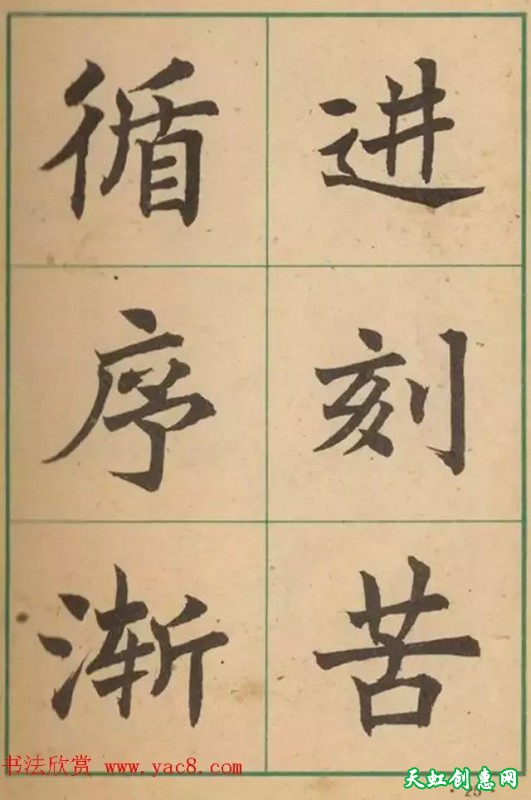 循序渐
进刻苦
书法欣赏 www.yac8.com
天虹创意网